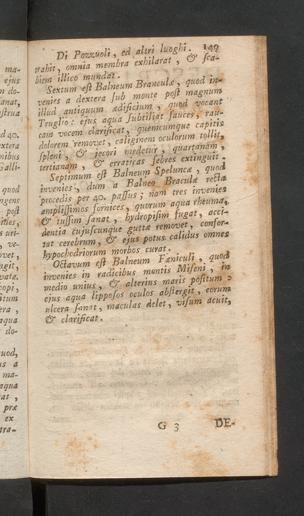 Di Pozzuoli, ed altri luoghi. 149
trahit, omnia membra exhilarat, & sca-
biem illico mundat.
Sextum est Balneum Brancula, quod in-
venies a dextera sub monte post magnum
illud antiquum ædificium, quod vocant
Truglio: ejus aqua subtiliat fauces, rau-
cam vocem clarificat, quemcumque capitis
dolorem removet, caliginem oculorum tollit,
spleni, & jecori medetur, quartanam,
tertianam, & erraticas febres extinguit.
Septimum est Balneum Speluncæ, quod
invenies, dum a Balneo Braculæ recta
procedis per 40. passus; nam tres invenies
amplissimos fornices, quorum aqua rheuma,
& tussim sanat, hydropisim fugat, acci-
dentia cujuscunque guttæ removet, confor-
tat cerebrum, & ejus potus calidus omnes
hypochodriorum morbos curat.
Octavum est Balneum Fæniculi, quod
invenies in radicibus montis Miseni, in
medio unius, & alterius maris positum:
ejus aqua lipposos oculos abstergit, eorum
ulcera sanat, maculas delet, visum acuit,
& clarificat.
G 3 DE-